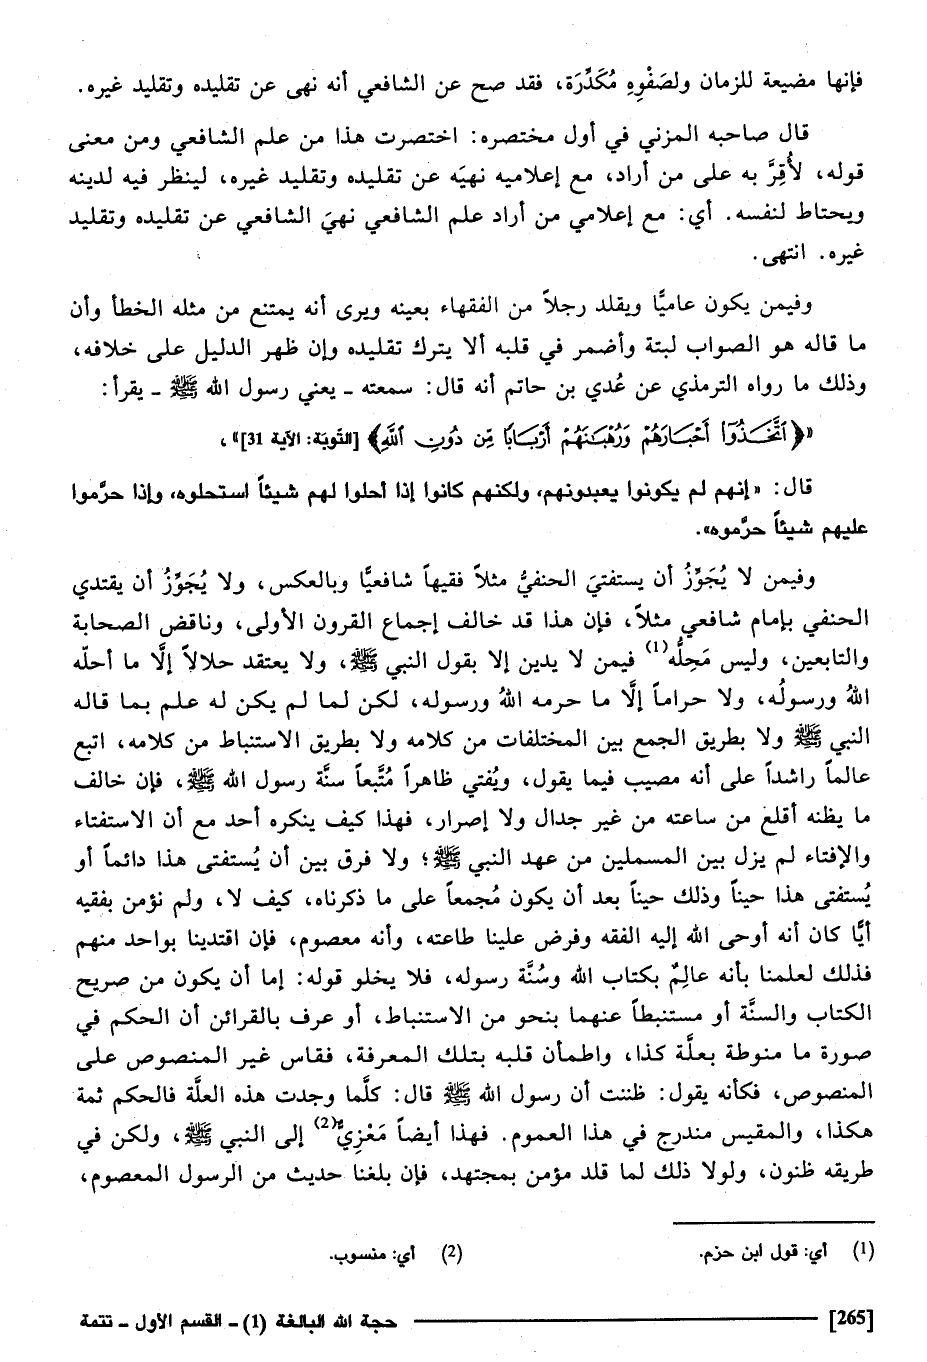 فإنها مضيعة للزمان ولصَفْوِهِ مُكَدِّرَة، فقد صح عن الشافعي أنه نهى عن تقليده وتقليد غيره.
قال صاحبه المزني في أول مختصره: اختصرت هذا من علم الشافعي ومن معنى
قوله، لأُقِرَّ به على من أراد، مع إعلاميه نهيَه عن تقليده وتقليد غيره، لينظر فيه لدينه
ويحتاط لنفسه. أي: مع إعلامي من أراد علم الشافعي نهيَ الشافعي عن تقليده وتقليد
غيره. انتهى.
وفيمن يكون عاميًّا ويقلد رجلاً من الفقهاء بعينه ويرى أنه يمتنع من مثله الخطأ وأن
ما قاله هو الصواب لبتة وأضمر في قلبه ألا يترك تقليده وإن ظهر الدليل على خلافه،
وذلك ما رواه الترمذي عن عُدي بن حاتم أنه قال: سمعته ـ يعني رسول الله ﷺ ـ يقرأ:
«﴿ٱتَّخَذُوٓا۟ أَحْبَارَهُمْ وَرُهْبَـٰنَهُمْ أَرْبَابًا مِّن دُونِ ٱللَّهِ﴾ [التّوبَة: الآية 31]»،
قال: «إنهم لم يكونوا يعبدونهم، ولكنهم كانوا إذا أحلوا لهم شيئاً استحلوه، وإذا حرَّموا
عليهم شيئاً حرَّموه».
وفيمن لا يُجَوِّزُ أن يستفتيَ الحنفيُّ مثلاً فقيهاً شافعيًّا وبالعكس، ولا يُجَوِّزُ أن يقتدي
الحنفي بإمام شافعي مثلاً، فإن هذا قد خالف إجماع القرون الأولى، وناقض الصحابة
والتابعين، وليس مَحِلُّه(1) فيمن لا يدين إلا بقول النبي ﷺ، ولا يعتقد حلالاً إلَّا ما أحلّه
اللهُ ورسولُه، ولا حراماً إلَّا ما حرمه اللهُ ورسوله، لكن لما لم يكن له علم بما قاله
النبي ﷺ ولا بطريق الجمع بين المختلفات من كلامه ولا بطريق الاستنباط من كلامه، اتبع
عالماً راشداً على أنه مصيب فيما يقول، ويُفتي ظاهراً مُتَّبعاً سنَّة رسول الله ﷺ، فإن خالف
ما يظنه أقلع من ساعته من غير جدال ولا إصرار، فهذا كيف ينكره أحد مع أن الاستفتاء
والإفتاء لم يزل بين المسملين من عهد النبي ﷺ؛ ولا فرق بين أن يُستفتى هذا دائماً أو
يُستفتى هذا حيناً وذلك حيناً بعد أن يكون مُجمعاً على ما ذكرناه، كيف لا، ولم نؤمن بفقيه
أيًّا كان أنه أوحى الله إليه الفقه وفرض علينا طاعته، وأنه معصوم، فإن اقتدينا بواحد منهم
فذلك لعلمنا بأنه عالِمٌ بكتاب الله وسُنَّة رسوله، فلا يخلو قوله: إما أن يكون من صريح
الكتاب والسنَّة أو مستنبطاً عنهما بنحو من الاستنباط، أو عرف بالقرائن أن الحكم في
صورة ما منوطة بعلَّة كذا، واطمأن قلبه بتلك المعرفة، فقاس غير المنصوص على
المنصوص، فكأنه يقول: ظننت أن رسول الله ﷺ قال: كلَّما وجدت هذه العلَّة فالحكم ثمة
هكذا، والمقيس مندرج في هذا العموم. فهذا أيضاً مَعْزِيٌّ(2) إلى النبي ﷺ، ولكن في
طريقه ظنون، ولولا ذلك لما قلد مؤمن بمجتهد، فإن بلغنا حديث من الرسول المعصوم،
(1) أي: قول ابن حزم. (2) أي: منسوب.
[265] حجة الله البالغة (1) ـ القسم الأول ـ تتمة